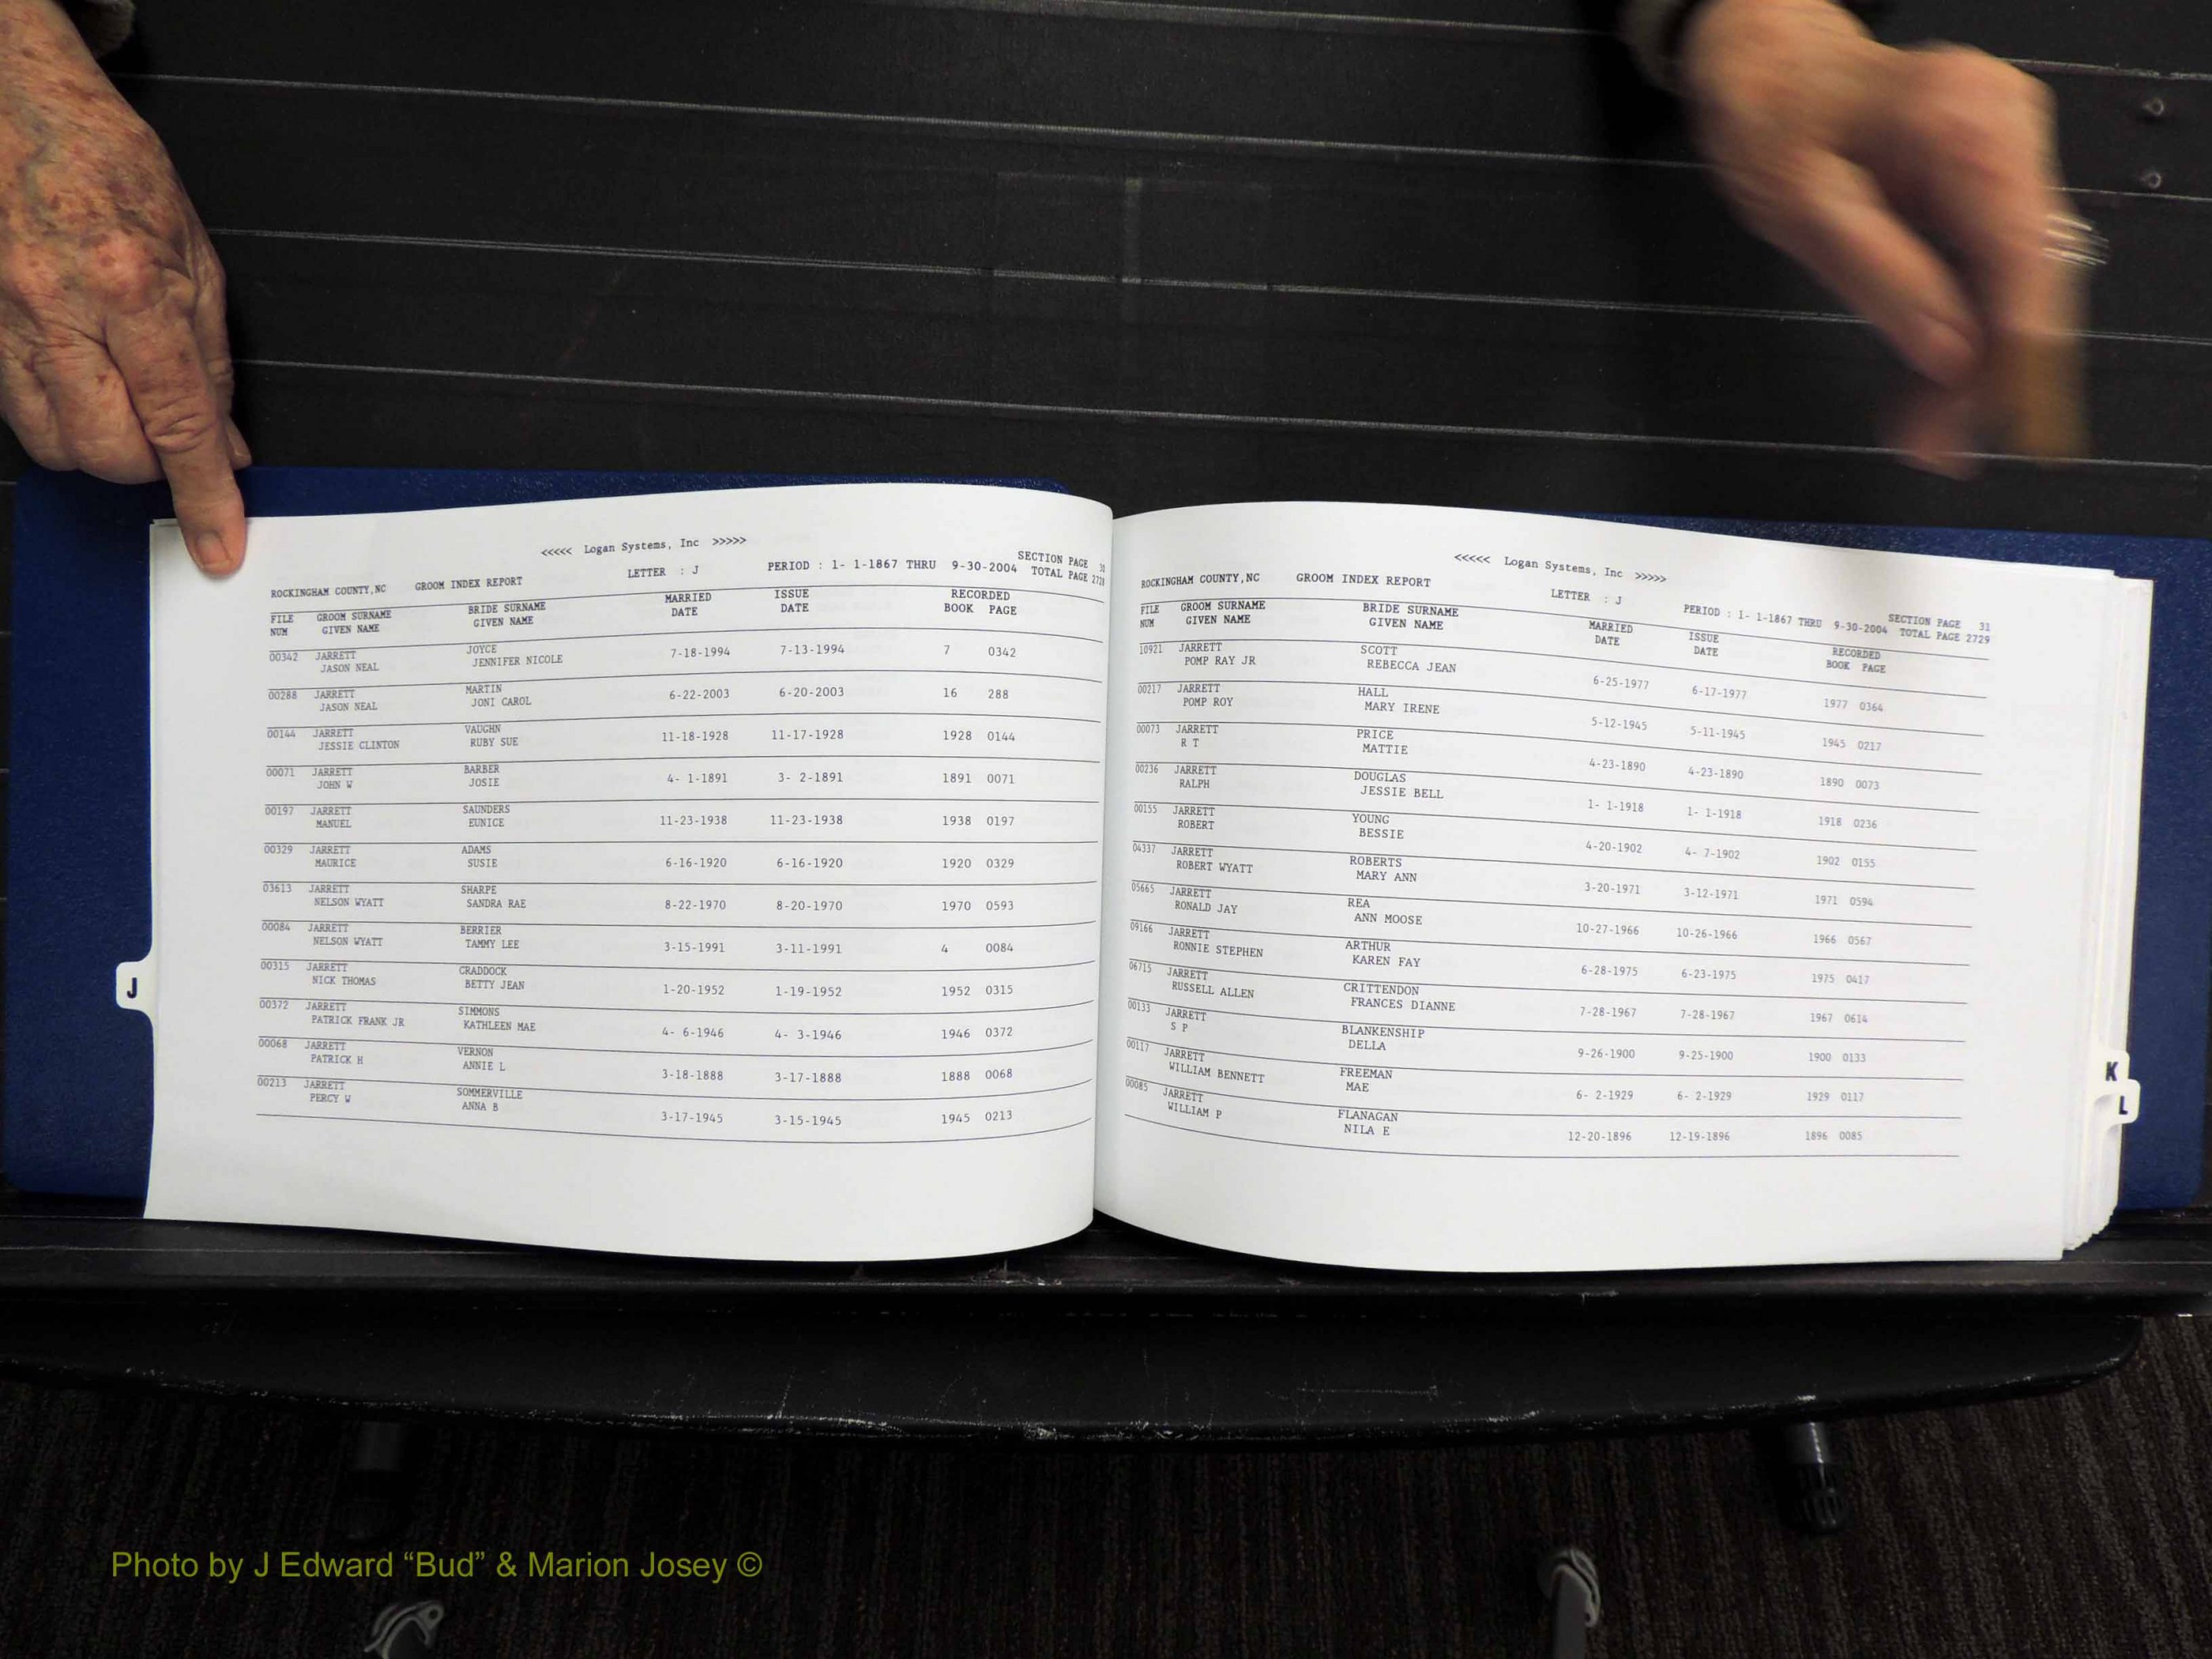 <<<<< Logan Systems, Inc >>>>>
SECTION PAGE 30
ROCKINGHAM COUNTY,NC GROOM INDEX REPORT LETTER : J PERIOD : 1- 1-1867 THRU 9-30-2004 TOTAL PAGE 2728
FILE GROOM SURNAME BRIDE SURNAME MARRIED ISSUE RECORDED
NUM GIVEN NAME GIVEN NAME DATE DATE BOOK PAGE
00342 JARRETT JOYCE 7-18-1994 7-13-1994 7 0342
JASON NEAL JENNIFER NICOLE
00288 JARRETT MARTIN 6-22-2003 6-20-2003 16 288
JASON NEAL JONI CAROL
00144 JARRETT VAUGHN 11-18-1928 11-17-1928 1928 0144
JESSIE CLINTON RUBY SUE
00071 JARRETT BARBER 4- 1-1891 3- 2-1891 1891 0071
JOHN W JOSIE
00197 JARRETT SAUNDERS 11-23-1938 11-23-1938 1938 0197
MANUEL EUNICE
00329 JARRETT ADAMS 6-16-1920 6-16-1920 1920 0329
MAURICE SUSIE
03613 JARRETT SHARPE 8-22-1970 8-20-1970 1970 0593
NELSON WYATT SANDRA RAE
00084 JARRETT BERRIER 3-15-1991 3-11-1991 4 0084
NELSON WYATT TAMMY LEE
00315 JARRETT CRADDOCK 1-20-1952 1-19-1952 1952 0315
NICK THOMAS BETTY JEAN
00372 JARRETT SIMMONS 4- 6-1946 4- 3-1946 1946 0372
PATRICK FRANK JR KATHLEEN MAE
00068 JARRETT VERNON 3-18-1888 3-17-1888 1888 0068
PATRICK H ANNIE L
00213 JARRETT SOMMERVILLE 3-17-1945 3-15-1945 1945 0213
PERCY W ANNA B
J
<<<<< Logan Systems, Inc >>>>>
SECTION PAGE 31
ROCKINGHAM COUNTY,NC GROOM INDEX REPORT LETTER : J PERIOD : 1- 1-1867 THRU 9-30-2004 TOTAL PAGE 2729
FILE GROOM SURNAME BRIDE SURNAME MARRIED ISSUE RECORDED
NUM GIVEN NAME GIVEN NAME DATE DATE BOOK PAGE
10921 JARRETT SCOTT 6-25-1977 6-17-1977 1977 0364
POMP RAY JR REBECCA JEAN
00217 JARRETT HALL 5-12-1945 5-11-1945 1945 0217
POMP ROY MARY IRENE
00073 JARRETT PRICE 4-23-1890 4-23-1890 1890 0073
R T MATTIE
00236 JARRETT DOUGLAS 1- 1-1918 1- 1-1918 1918 0236
RALPH JESSIE BELL
00155 JARRETT YOUNG 4-20-1902 4- 7-1902 1902 0155
ROBERT BESSIE
04337 JARRETT ROBERTS 3-20-1971 3-12-1971 1971 0594
ROBERT WYATT MARY ANN
05665 JARRETT REA 10-27-1966 10-26-1966 1966 0567
RONALD JAY ANN MOOSE
09166 JARRETT ARTHUR 6-28-1975 6-23-1975 1975 0417
RONNIE STEPHEN KAREN FAY
06715 JARRETT CRITTENDON 7-28-1967 7-28-1967 1967 0614
RUSSELL ALLEN FRANCES DIANNE
00133 JARRETT BLANKENSHIP 9-26-1900 9-25-1900 1900 0133
S P DELLA
00117 JARRETT FREEMAN 6- 2-1929 6- 2-1929 1929 0117
WILLIAM BENNETT MAE
00085 JARRETT FLANAGAN 12-20-1896 12-19-1896 1896 0085
WILLIAM P NILA E
K
L
Photo by J Edward “Bud” & Marion Josey ©